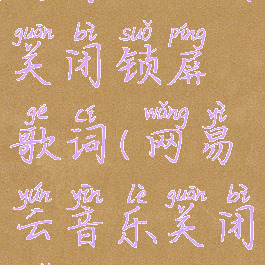 guān bì suǒ píng
关闭锁屏
gē cí wǎng yì
歌词(网易
yún yīn lè guān bì
云音乐关闭